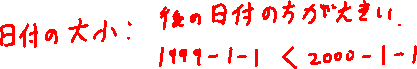 日付の大小： 後の日付の方が大きい.
1999-1-1 < 2000-1-1